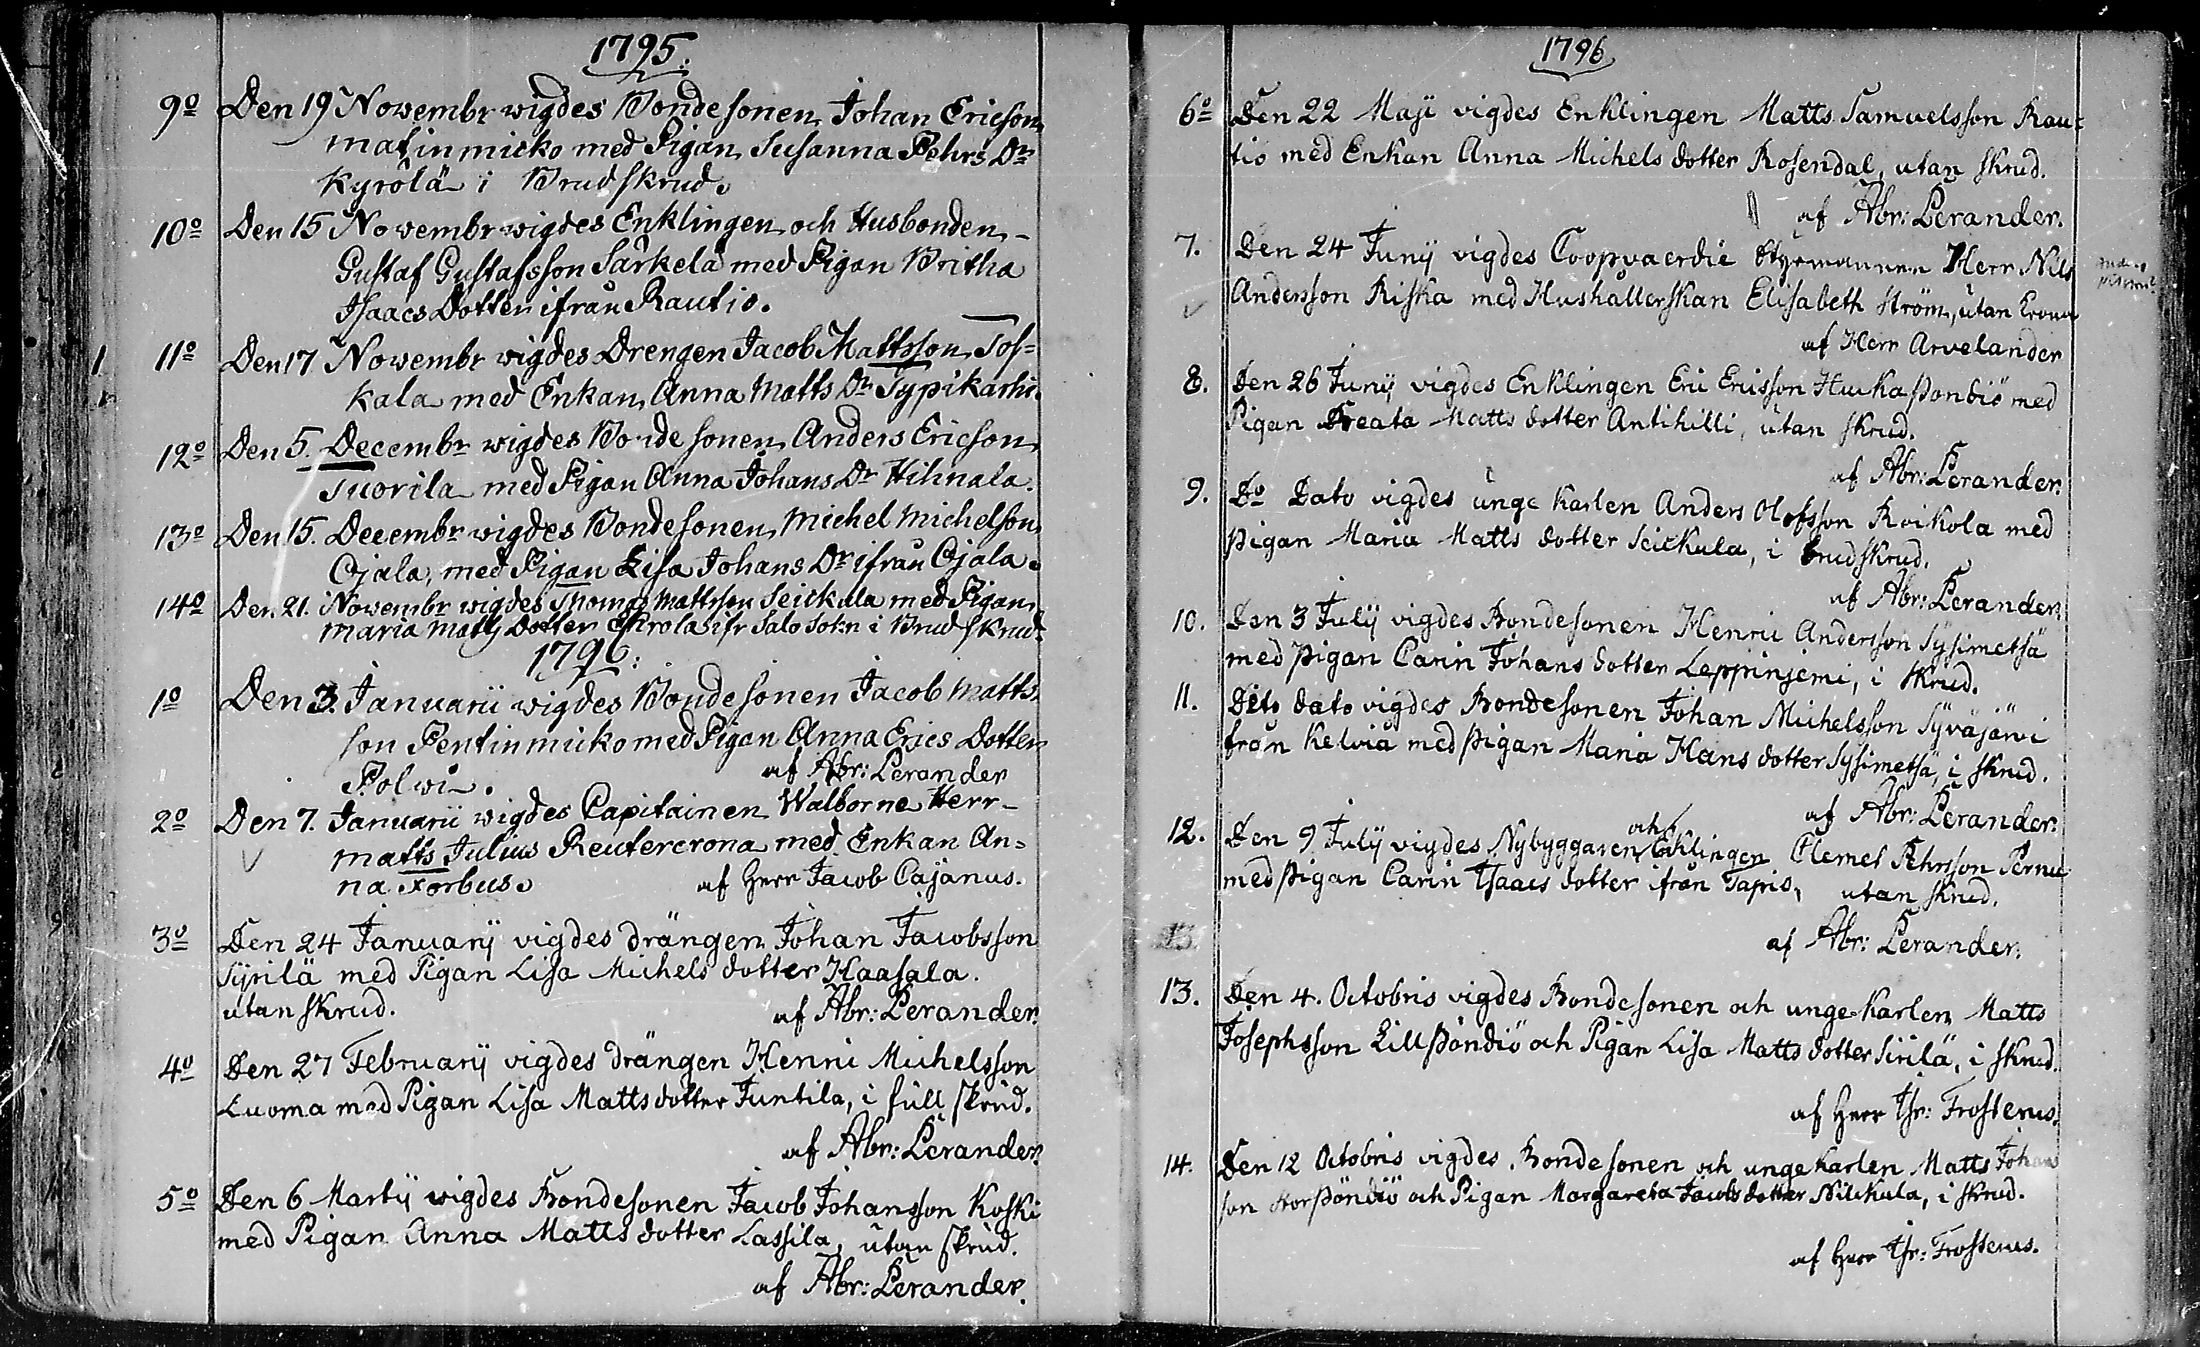 1795.
9o Den 19 Novembr wigdes Bondesonen Johan Ericson
matinmicko med Pigan Susanna Pehrs Dr
Kyrölä i Brudskrud.
10o Den 15 Novembr wigdes Enklingen och Husbonden
Gustaf Gustafsson Särkelä med Pigan Britha
Isaacs Dotter ifrån Rautio.
11o Den 17 Novembr wigdes Drengen Jacob Mattsson Tof=
kala med Enkan Anna Matts Dr Typikarhi.
12o Den 5. Decembr wigdes Bondesonen Anders Ericson
Tuorila med Pigan Anna Johans Dr Hihnala.
13o Den 15. Decembr wigdes Bondesonen Michel Michelson
Ojala, med Pigan Lisa Johans Dr ifrån Ojala.
14o Den 21. Novembr wigdes Thomas Mattsson Seickula med Pigan
Maria Matts Dotter ifr Salo Sokn i Brudskrud.
1796:
1o Den 3. Januarii wigdes Bondesonen Jacob Matts
son Pentinmicko med Pigan Anna Erics Dotter
Polwi. af Abr: Lerander
2o Den 7. Januarii wigdes Capitainen Walborne Herr
matts Julius Reutercrona med Enkan An=
na Forbus. af Herr Jacob Cajanus.
3o Den 24 Januarij vigdes drängen Johan Jacobsson
Syrilä med Pigan Lisa Michels dotter Haasala.
utan skrud. af Abr: Lerander.
4o Den 27 Februarij vigdes drängen Henric Michelsson
Luoma med Pigan Lisa Matts dotter Juntila, i full skrud.
af Abr: Lerander.
5o Den 6 Martij wigdes Bondesonen Jacob Johansson Koski
med Pigan Anna Matts dotter Lassila, utan skrud.
af Abr: Lerander.
1796
6o Den 22 Maji vigdes Enklingen Matts Samuelsson Rau=
tio med Enkan Anna Michels dotter Rosendal, utan skrud.
af Abr: Lerander.
7. Den 24 Junij vigdes Coopvaerdie Styrmannen Herr Nils
Andersson Riska med Hushållerskan Elisabeth Ström, utan Crona
af Herr Arvelander
8. Den 26 Junij vigdes Enklingen Eric Ericsson Huckapöndiö med
Pigan Breata Matts dotter Antihilli, utan skrud.
af Abr: Lerander.
9. Do Dato vigdes unge karlen Anders Olofsson Roikola med
Pigan Maria Matts dotter Seickula, i brudskrud.
af Abr: Lerander.
10. Den 3 Julij vigdes Bondesonen Henric Andersson Sysimetsä
med pigan Carin Johans dotter Leppinjemi, i skrud.
11. Dito dato vigdes Bondesonen Johan Michelsson Syväjärvi
från Kelviå med pigan Maria Hans dotter Sysimetsä, i skrud.
af Abr: Lerander.
12. Den 9 Julij vigdes Nybyggaren och Enklingen Clemet Pehrsson Pernu
med pigan Carin Isaacs dotter ifrån Tapio, utan skrud.
af Abr: Lerander.
13. Den 4. Octobris vigdes Bondesonen och unge karlen Matts
Josephsson Lillpöndiö och Pigan Lisa Matts dotter Sirilä, i skrud.
af Herr Thr: Frosterus.
14. Den 12 Octobris vigdes Bondesonen och unge karlen Matts Johans
son Storpöndiö och Pigan Margareta Jacobs dotter Nilckula, i skrud.
af Herr Thr: Frosterus.